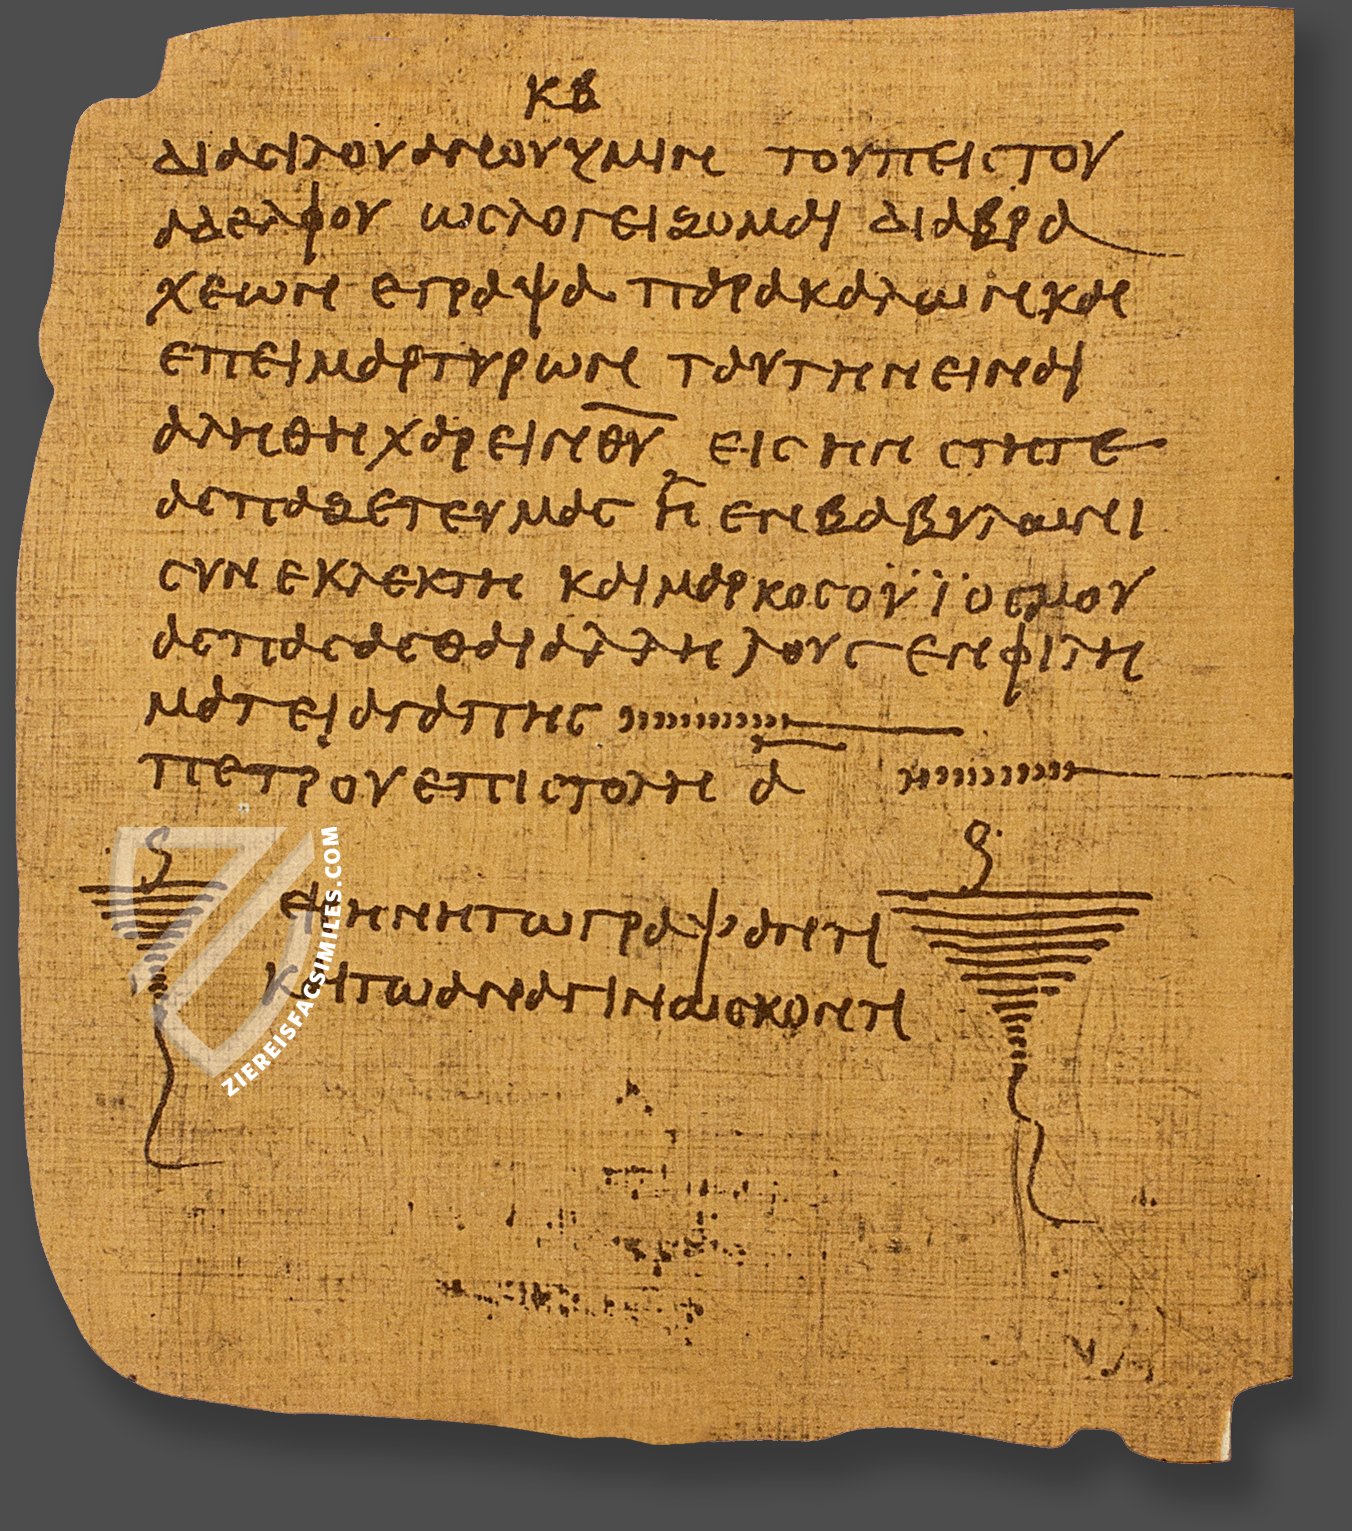 κβ
διαειλουανουυμιν του πειστου
αδελφου ως λογειζομαι δια βρα
χεων εγραψα παρακαλων και
επειμαρτυρων ταυτην ειναι
αληθη χαρειν θ̅υ̅ εις ην στητε
ασπαζετε υμας η εν βαβυλωνι
συνεκλεκτη και μαρκος ο ϋϊος μου
ασπασασθαι αλληλους εν φιλη
ματει αγαπης
πετρου επιστολη α̅
ειρηνη τω γραψαντι
και τω αναγινωσκοντι
ZIEREISFACSIMILES.COM